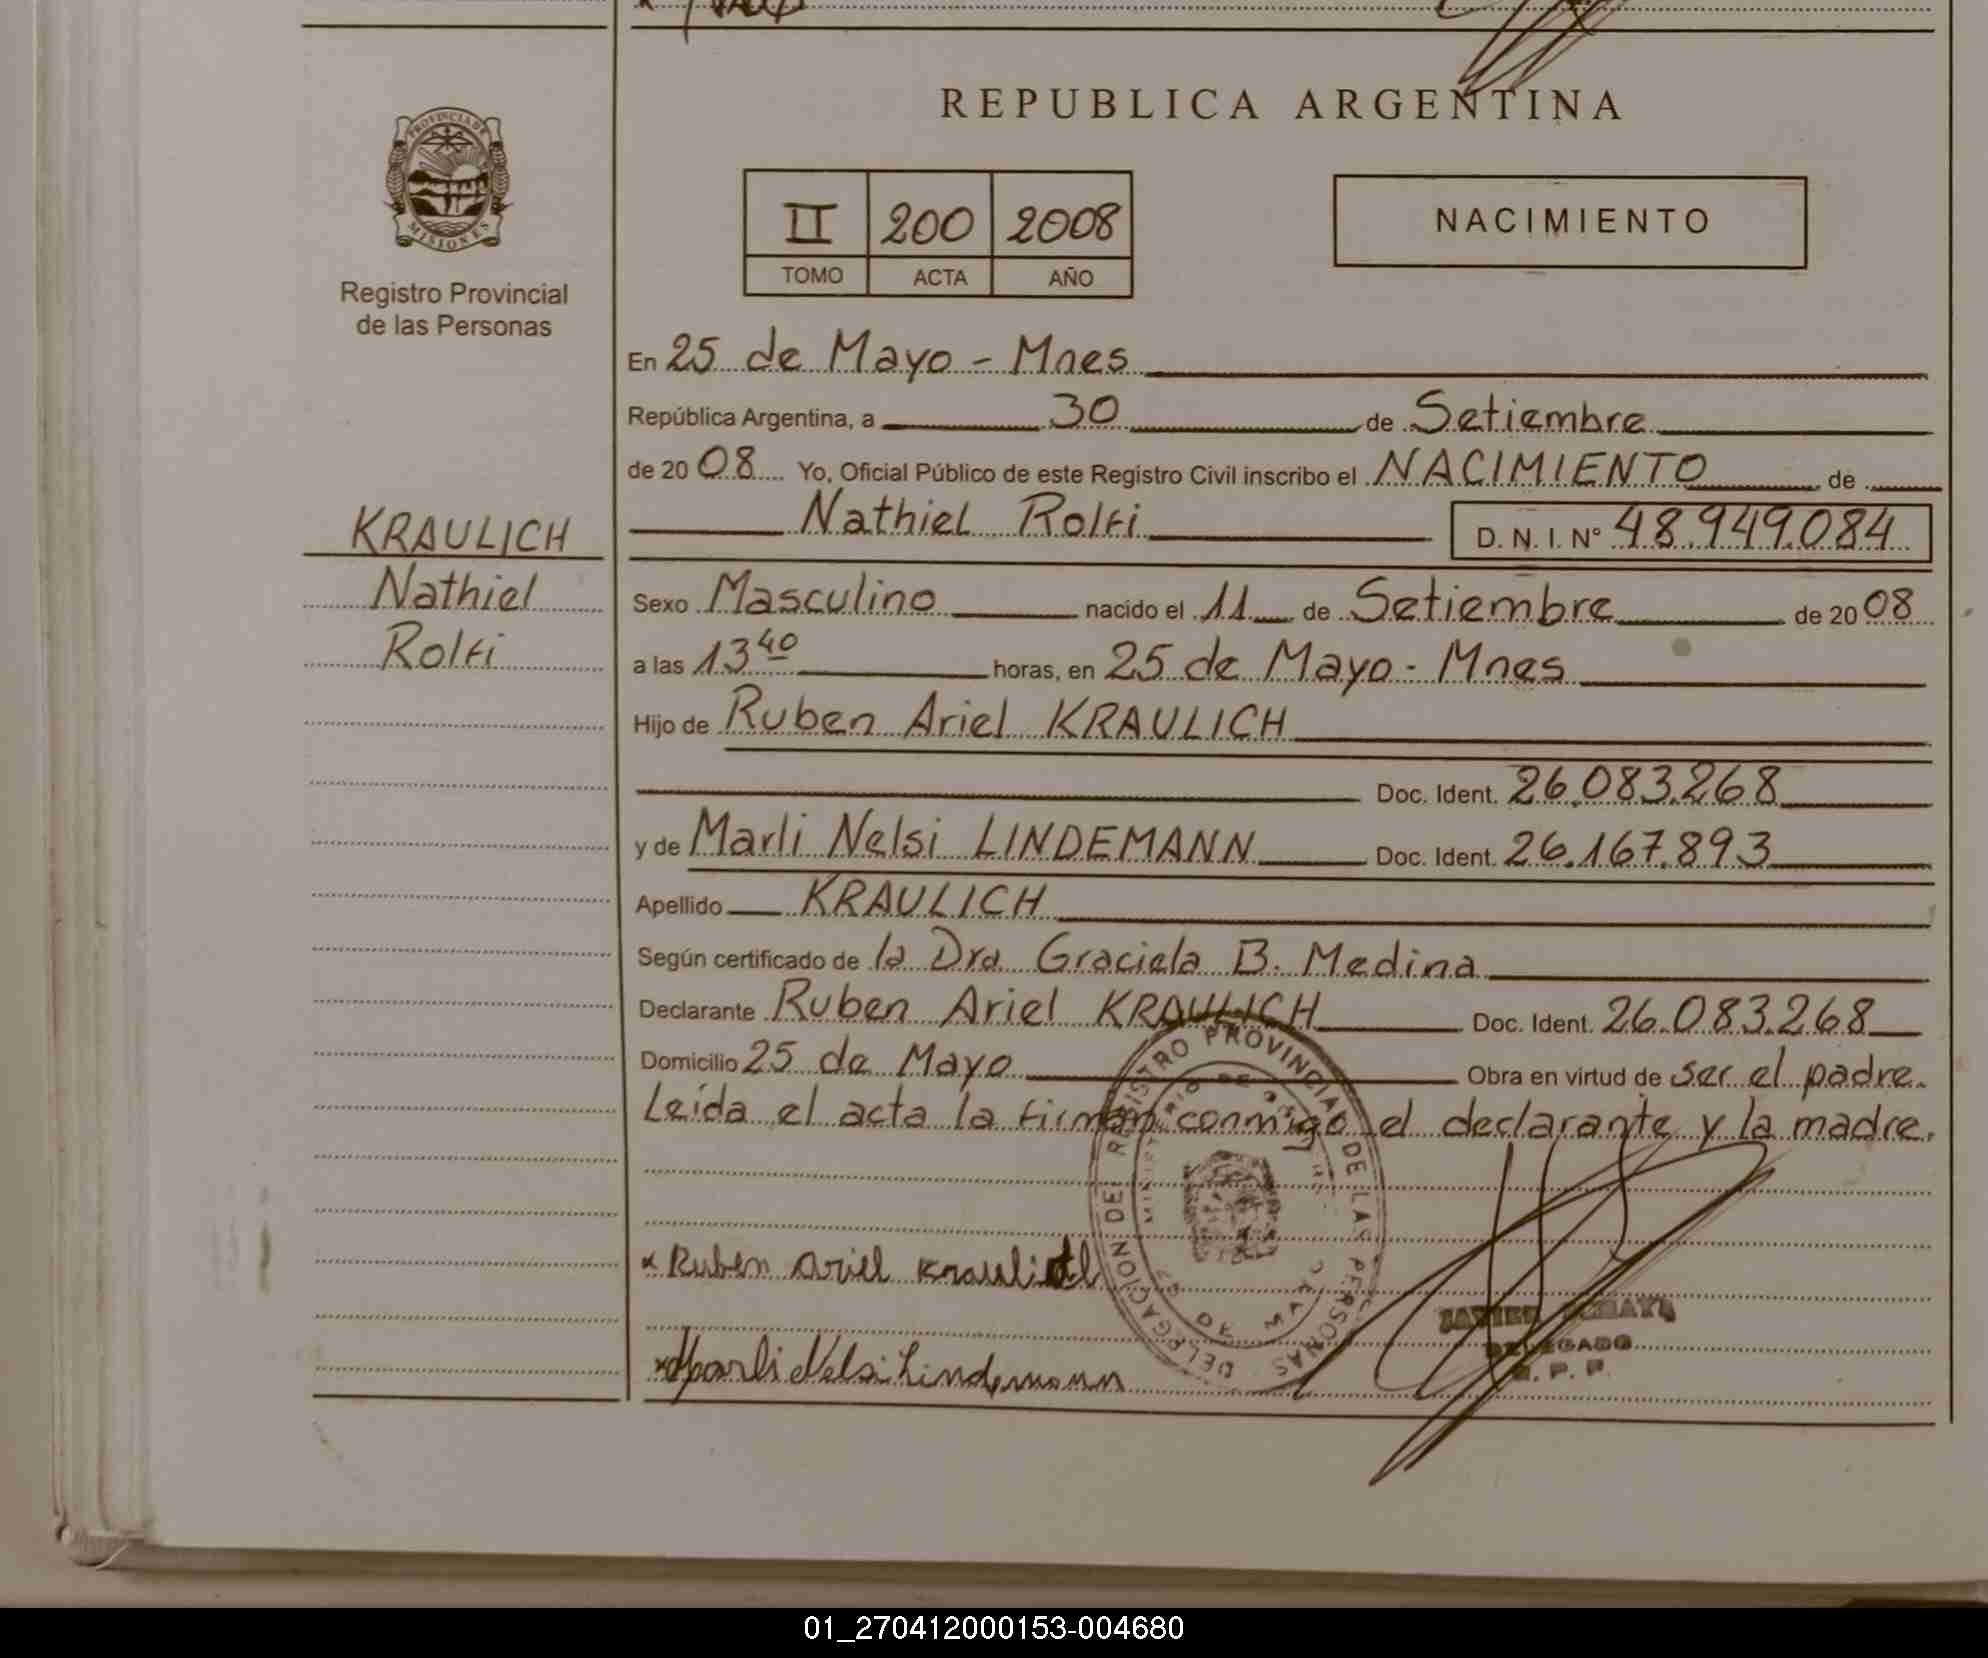 REPUBLICA ARGENTINA
PROVINCIA DE
MISIONES
Registro Provincial
de las Personas
II 200 2008
TOMO ACTA AÑO
NACIMIENTO
En 25 de Mayo - Mnes
República Argentina, a 30 de Setiembre
de 2008 Yo, Oficial Público de este Registro Civil inscribo el NACIMIENTO de
Nathiel Rolfi D. N. I. Nº 48.949.084
KRAULICH
Nathiel
Rolfi
Sexo Masculino nacido el 11 de Setiembre de 2008
a las 13 40 horas, en 25 de Mayo - Mnes
Hijo de Ruben Ariel KRAULICH
Doc. Ident. 26.083.268
y de Marli Nelsi LINDEMANN Doc. Ident. 26.167.893
Apellido KRAULICH
Según certificado de la Dra Graciela B. Medina
Declarante Ruben Ariel KRAULICH Doc. Ident. 26.083.268
Domicilio 25 de Mayo Obra en virtud de ser el padre.
Leída el acta la firman conmigo el declarante y la madre.
DELEGACION DEL REGISTRO PROVINCIAL DE LAS PERSONAS
MINISTERIO DE
25 DE MAYO
x Ruben Ariel Kraulich
x Marli Nelsi Lindemann
JAVIER
DELEGADO
R. P. P.
01_270412000153-004680